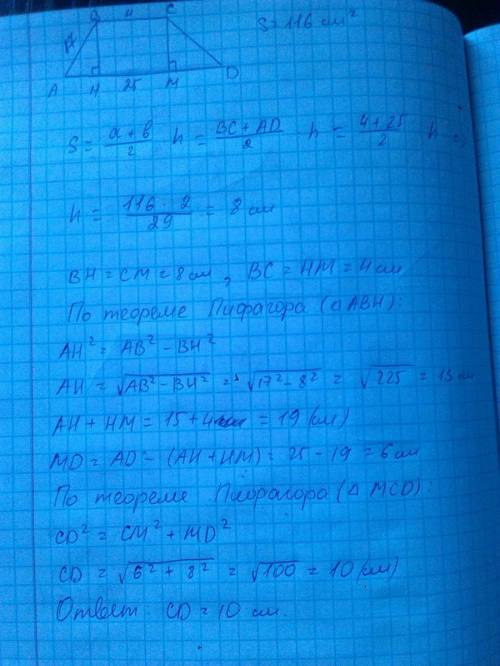 B 4 C S = 116 см²
17
A H 25 M D
S = (a + b)/2 h = (BC + AD)/2 h = (4 + 25)/2 h =
h = (116 · 2)/29 = 8 см
BH = CM = 8 см, BC = HM = 4 см
По теореме Пифагора (△ABH):
AH² = AB² - BH²
AH = √(AB² - BH²) = √(17² - 8²) = √225 = 15 см
AH + HM = 15 + 4 = 19 (см)
MD = AD - (AH + HM) = 25 - 19 = 6 см
По теореме Пифагора (△ MCD):
CD² = CM² + MD²
CD = √(6² + 8²) = √100 = 10 (см)
Ответ: CD = 10 см.